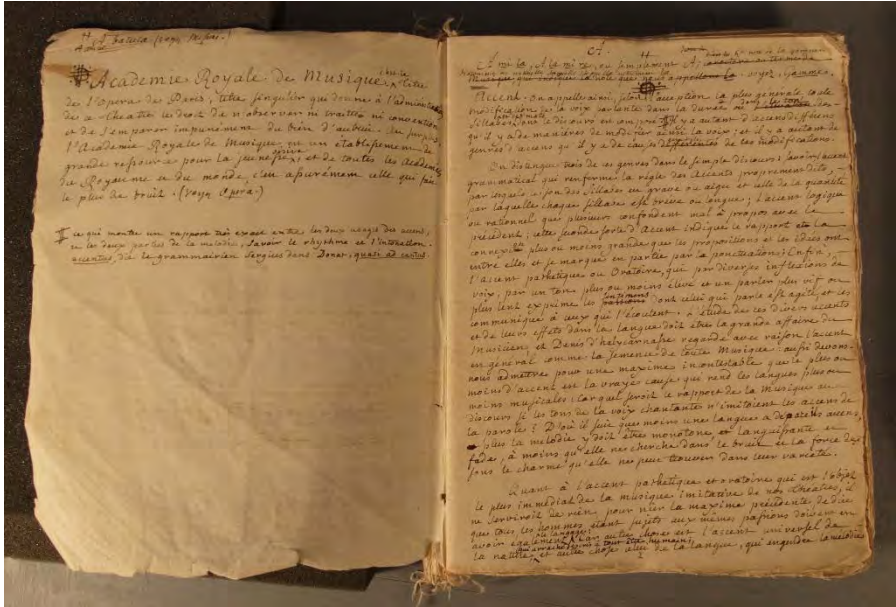 A battuta (voyez Mesure.)
Academie Royale de Musique. C'est le titre
de l'Opera de Paris; titre singulier qui donne à l'administration
de ce Théatre le droit de n'observer ni traittés ni conventions
et de s'emparer impunement du bien d'autrui. Au surplus
l'Academie Royale de Musique est un établissement de
grande ressource pour la jeunesse oisive, et de toutes les Academies
du Royaume et du monde, c'est assurément celle qui fait
le plus de bruit. (voyez Opera.)
ce qui montre un rapport très exact entre les deux usages des accens,
et les deux parties de la melodie, savoir le rhythme et l'intonation.
accentus, dit le grammairien Sergius dans Donat, quasi ad cantus.
A.
A mi la, A la mi re, ou simplement A,
voyez, Gammes.
Accent. On appelle ainsi, selon l'acception la plus generale, toute
modification de la voix parlante dans la durée ou dans le ton des
sillabes et des mots dont le discours est composé; Il y a autant d'accens differens
qu'il y a de manières de modifier ainsi la voix; et il y a autant de
genres d'accens qu'il y a de causes differentes de ces modifications.
On distingue trois de ces genres dans le simple discours; savoir, l'accent
grammatical qui renferme la règle des Accents proprement dits,
par lesquels le son des sillabes est grave ou aigu et celle de la quantité
par laquelle chaque sillabe est breve ou longue; l'accent logique
ou rationnel que plusieurs confondent mal à propos avec le
précédent; cette seconde sorte d'Accent indique le rapport et la
connexité plus ou moins grande que les propositions et les idées ont
entre elles et se marque en partie par la ponctuation; Enfin
l'accent pathetique ou Oratoire, qui par diverses inflexions de
voix, par un ton plus ou moins élevé et un parler plus vif ou
plus lent exprime les sentimens dont celui qui parle est agité, et les
communique à ceux qui l'écoutent. L'étude de ces divers accents
et de leurs effets dans la langue doit être la grande affaire du
Musicien, et Denis d'halycarnasse regarde avec raison l'accent
en général comme la semence de toute Musique. aussi devons-
nous admettre pour une maxime incontestable que le plus ou
moins d'accent est la vraye cause qui rend les langues plus ou
moins musicales; car quel seroit le rapport de la Musique au
discours si les tons de la voix chantante n'imitoient les accens de
la parole? D'où il suit que moins une langue a de pareils accens,
plus la melodie y doit être monotone et languissante et
fade, à moins qu'elle ne cherche dans le bruit et la force des
sons le charme qu'elle ne peut trouver dans leur varieté.
Quant à l'accent pathetique et oratoire qui est l'objet
le plus immédiat de la musique imitative de nos théatres, il
ne serviroit de rien pour nier la maxime précédente de dire
que tous les hommes étant sujets aux mêmes passions doivent en
avoir egalement le langage. Car autre chose est l'accent universel de
la nature qui arrache des cris à tout être humain, et autre chose celui de la langue, qui engendre la melodie